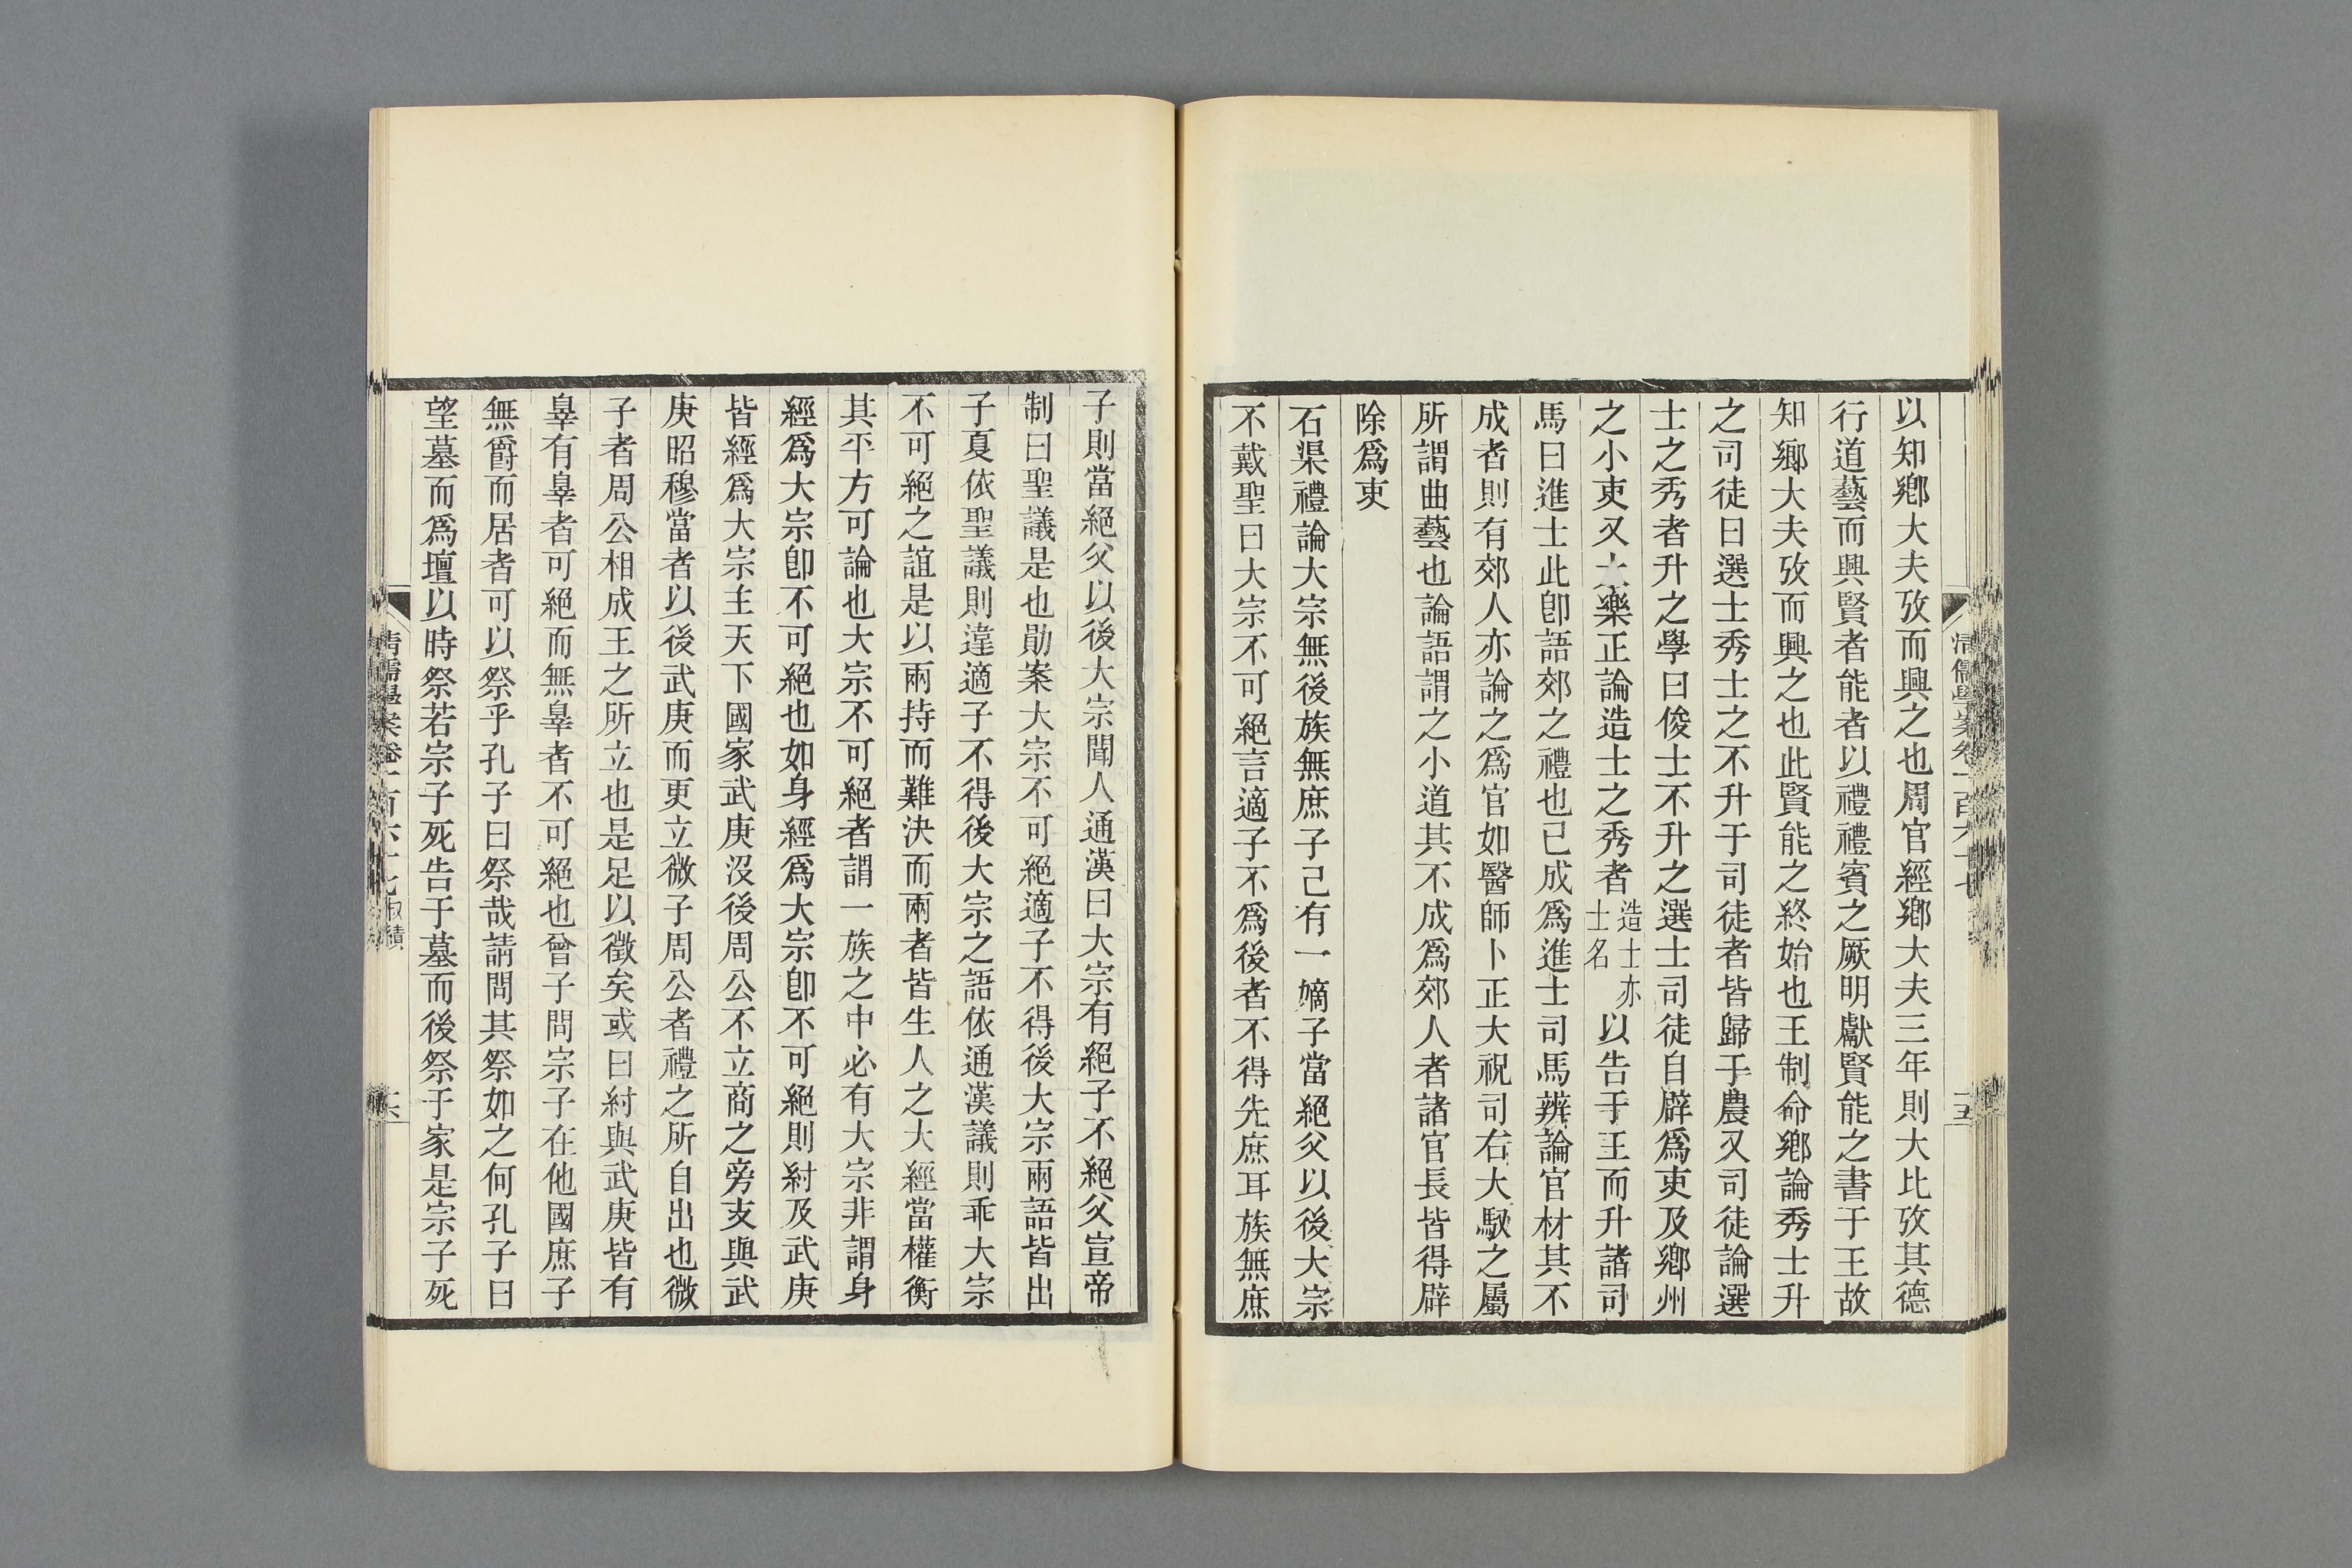 以知鄕大夫攷而興之也周官經鄕大夫三年則大比攷其德
行道藝而興賢者能者以禮禮賓之厥明獻賢能之書于王故
知鄕大夫攷而興之也此賢能之終始也王制命鄕論秀士升
之司徒曰選士秀士之不升于司徒者皆歸于農又司徒論選
士之秀者升之學曰俊士不升之選士司徒自辟爲吏及鄕州
之小吏又大樂正論造士之秀者造士亦士名以告于王而升諸司
馬曰進士此卽語郊之禮也已成爲進士司馬辨論官材其不
成者則有郊人亦論之爲官如醫師卜正大祝司右大馭之屬
所謂曲藝也論語謂之小道其不成爲郊人者諸官長皆得辟
除爲吏
石渠禮論大宗無後族無庶子己有一嫡子當絕父以後大宗
不戴聖曰大宗不可絕言適子不爲後者不得先庶耳族無庶
清儒學案卷一百六十七
十五
子則當絕父以後大宗聞人通漢曰大宗有絕子不絕父宣帝
制曰聖議是也勛案大宗不可絕適子不得後大宗兩語皆出
子夏依聖議則違適子不得後大宗之語依通漢議則乖大宗
不可絕之誼是以兩持而難決而兩者皆生人之大經當權衡
其平方可論也大宗不可絕者謂一族之中必有大宗非謂身
經爲大宗卽不可絕也如身經爲大宗卽不可絕則紂及武庚
皆經爲大宗主天下國家武庚沒後周公不立商之旁支與武
庚昭穆當者以後武庚而更立微子周公者禮之所自出也微
子者周公相成王之所立也是足以徵矣或曰紂與武庚皆有
辠有辠者可絕而無辠者不可絕也曾子問宗子在他國庶子
無爵而居者可以祭乎孔子曰祭哉請問其祭如之何孔子曰
望墓而爲壇以時祭若宗子死告于墓而後祭于家是宗子死
清儒學案卷一百六十七